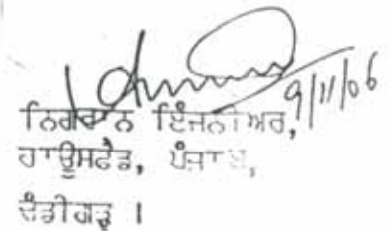 9/11/06
ਨਿਗਰਾਨ ਇੰਜਨੀਅਰ,
ਹਾਊਸਫੈਡ, ਪੰਜਾਬ,
ਚੰਡੀਗੜ੍ਹ ।